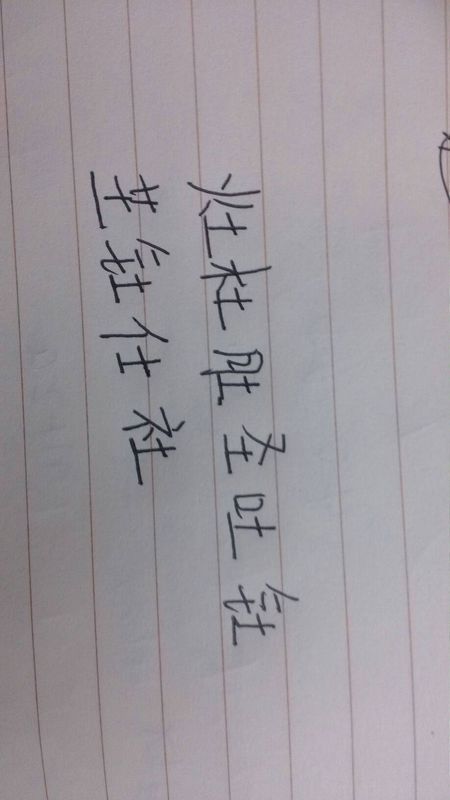 灶杜肚圣吐钍
芏钍仕社